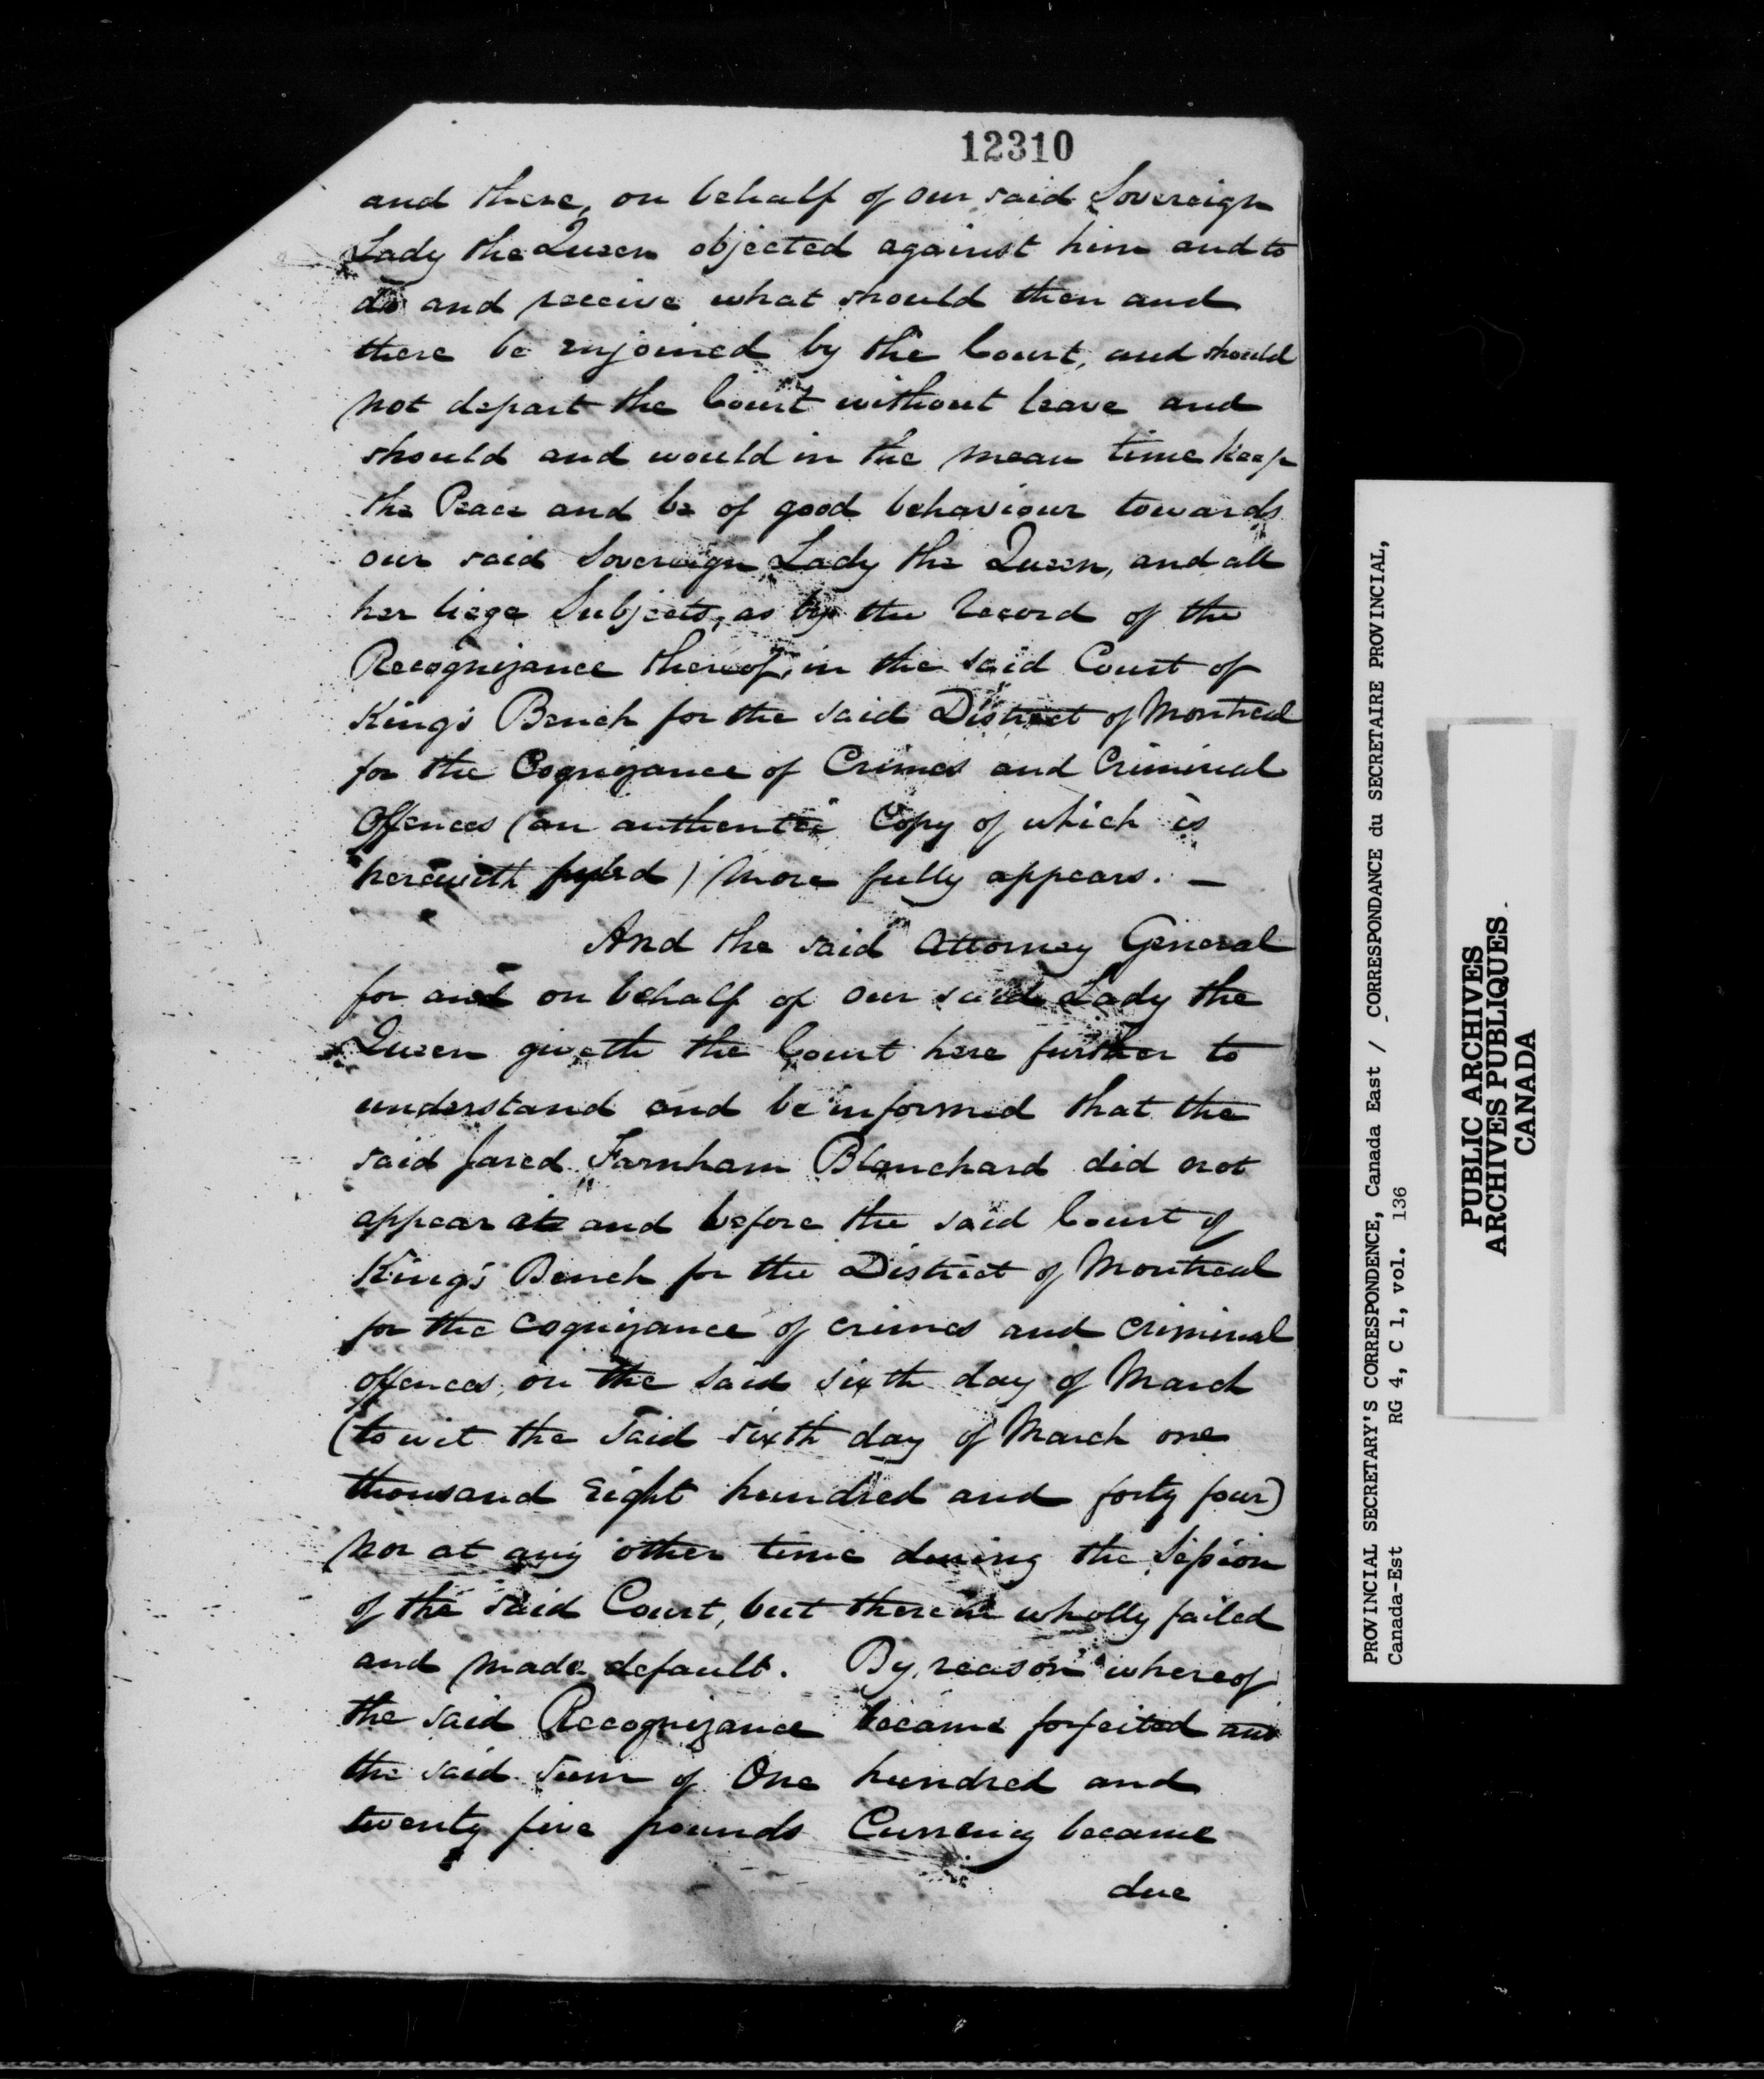 12310
and there, on behalf of our said Sovereign
Lady the Queen objected against him and to
do and receive what should then and
there be enjoined by the Court, and should
not depart the Court without leave and
should and would in the mean time keep
the Peace and be of good behaviour towards
our said Sovereign Lady the Queen, and all
her liege Subjects, as by the Record of the
Recognizance thereof, in the said Court of
King's Bench for the said District of Montreal
for the Cognizance of Crimes and Criminal
Offences (an authentic Copy of which is
herewith fyled) more fully appears. —
And the said Attorney General
for and on behalf of our said Lady the
Queen giveth the Court here further to
understand and be informed that the
said Jared Farnham Blanchard did not
appear at and before the said Court of
King's Bench for the District of Montreal
for the cognizance of crimes and criminal
offences, on the said sixth day of March
(to wit the said sixth day of March one
thousand Eight hundred and forty four)
nor at any other time during the Session
of the said Court, but therein wholly failed
and made default. By reason whereof
the said Recognizance became forfeited and
the said sum of One hundred and
twenty five pounds Currency became
due
PROVINCIAL SECRETARY'S CORRESPONDENCE, Canada East / CORRESPONDANCE du SECRETAIRE PROVINCIAL,
Canada-Est RG 4, C 1, vol. 136
PUBLIC ARCHIVES
ARCHIVES PUBLIQUES
CANADA